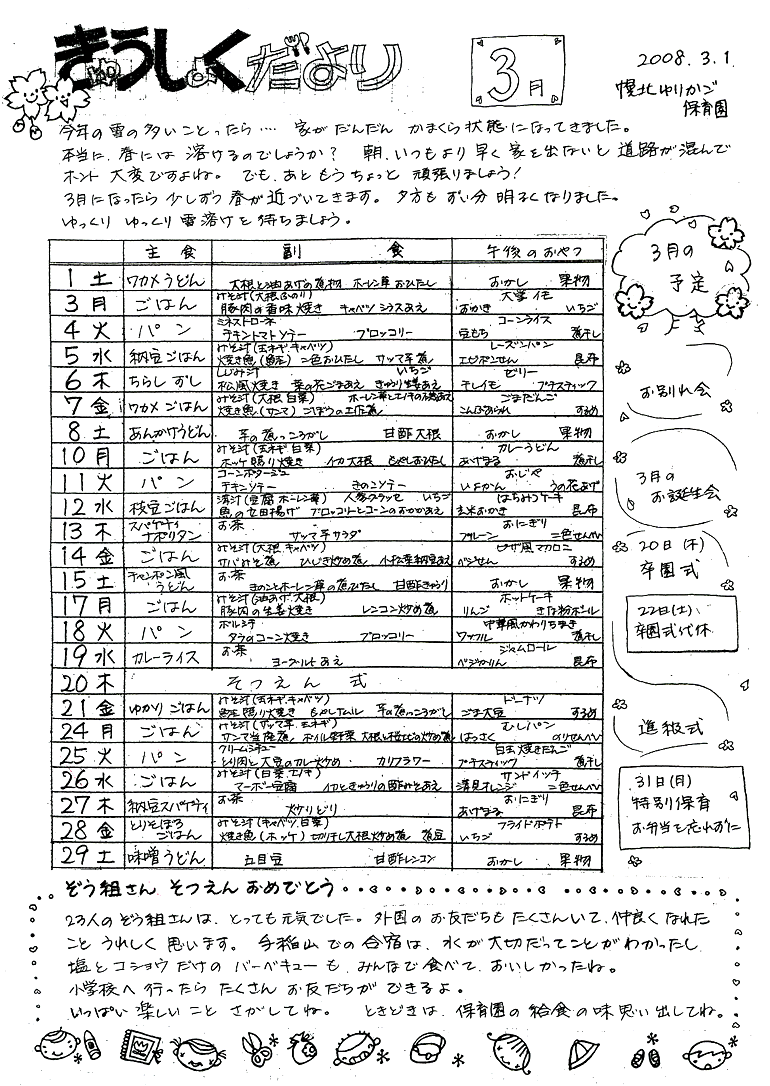 きゅうしょくだより
3月
2008.3.1.
幌北ゆりかご
保育園
今年の雪の多いことったら‥‥ 家がだんだん かまくら状態になってきました。
本当に、春には 溶けるのでしょうか? 朝、いつもより 早く 家を出ないと 道路が混んで
ホント 大変ですよね。 でも、あと もうちょっと 頑張りましょう!
3月になったら 少しずつ 春が近づいてきます。夕方も ずい分 明るくなりました。
ゆっくり ゆっくり 雪溶けを待ちましょう。
主食 副食 午後のおやつ
1 土 ワカメうどん 大根と油あげの煮物 ホーレン草おひたし おかし 果物
みそ汁(大根 ふのり) 大学イモ
3 月 ごはん 豚肉の香味焼き キャベツシラスあえ おかき いちご
ミネストローネ コーンライス
4 火 パン チキントマトソテー ブロッコリー 豆もち 煮干し
みそ汁(玉ネギ、キャベツ) レーズンパン
5 水 納豆ごはん 焼き魚(鮭) 二色おひたし サツマ芋煮 エビポンせん 昆布
しじみ汁 いちご ゼリー
6 木 ちらしずし 松風焼き 菜の花ごまあえ きゅうり生姜あえ チーズイモ プチスティック
みそ汁(大根 白菜) ごまだんご
7 金 ワカメごはん 焼き魚(サンマ) ごぼうの土佐煮 こんぶあられ するめ
8 土 あんかけうどん 芋の煮っころがし 甘酢大根 おかし 果物
みそ汁(玉ネギ 白菜) カレーうどん
10 月 ごはん ホッケ照り焼き イカ大根 もやしおひたし あげまる 煮干し
コーンポタージュ おじや
11 火 パン チキンソテー きのこソテー いよかん うの花あげ
清汁(豆腐 ホーレン草) 人参グラッセ いちご はちみつケーキ
12 水 枝豆ごはん 魚の竜田揚げ ブロッコリーとコーンのおかかあえ 玄米おかき 昆布
スパゲティ お茶 おにぎり
13 木 ナポリタン サツマ芋サラダ プルーン 二色せんべい
みそ汁(大根、キャベツ) ピザ風マカロニ
14 金 ごはん サバみそ煮 ひじき炒め煮 小松菜納豆あえ ベジせん するめ
チャンポン風 お茶
15 土 うどん きのことホーレン草の煮びたし 甘酢きゅうり おかし 果物
みそ汁(油あげ、大根) ホットケーキ
17 月 ごはん 豚肉の生姜焼き レンコン炒め煮 りんご きな粉ボール
ボルシチ 中華風かわりちまき
18 火 パン タラのコーン焼き ブロッコリー ワッフル 煮干し
お茶 ジャムロール
19 水 カレーライス ヨーグルトあえ ベジかりん 昆布
20 木 そつえん式
みそ汁(玉ネギ、キャベツ) ドーナツ
21 金 ゆかりごはん 鮭照り焼き もやしナムル 芋の煮っころがし ごま大豆 するめ
みそ汁(サツマ芋、玉ネギ) むしパン
24 月 ごはん サンマ生姜煮 ボイル野菜 はっさく のりせんべい
クリームシチュー 白玉焼きだんご
25 火 パン とり肉と大豆のカレー炒め カリフラワー プチスティック 煮干し
みそ汁(白菜、エノキ) サンドイッチ
26 水 ごはん マーボー豆腐 イカときゅうりの酢みそあえ 清見オレンジ 二色せんべい
お茶 おにぎり
27 木 納豆スパゲティ 炒りどり あげまる 昆布
とりそぼろ みそ汁(キャベツ、白菜) フライドポテト
28 金 ごはん 焼き魚(ホッケ) 切り干し大根炒め煮 煮豆 いちご するめ
29 土 味噌うどん 五目豆 甘酢レンコン おかし 果物
3月の
予定
お別れ会
3月の
お誕生会
20日(木)
卒園式
22日(土)
卒園式代休
進級式
31日(月)
特別保育
お弁当を忘れずに
ぞう組さん そつえん おめでとう
23人のぞう組さんは、とっても元気でした。外国の お友だちも たくさんいて、仲良く なれた
こと うれしく 思います。 手稲山での合宿は、水が大切だってことがわかったし
塩とコショウだけの バーベキューも、みんなで食べて、おいしかったね。
小学校へ 行ったら たくさん お友だちができるよ。
いっぱい 楽しいこと さがしてね。 ときどきは、保育園の給食の味思い出してね。